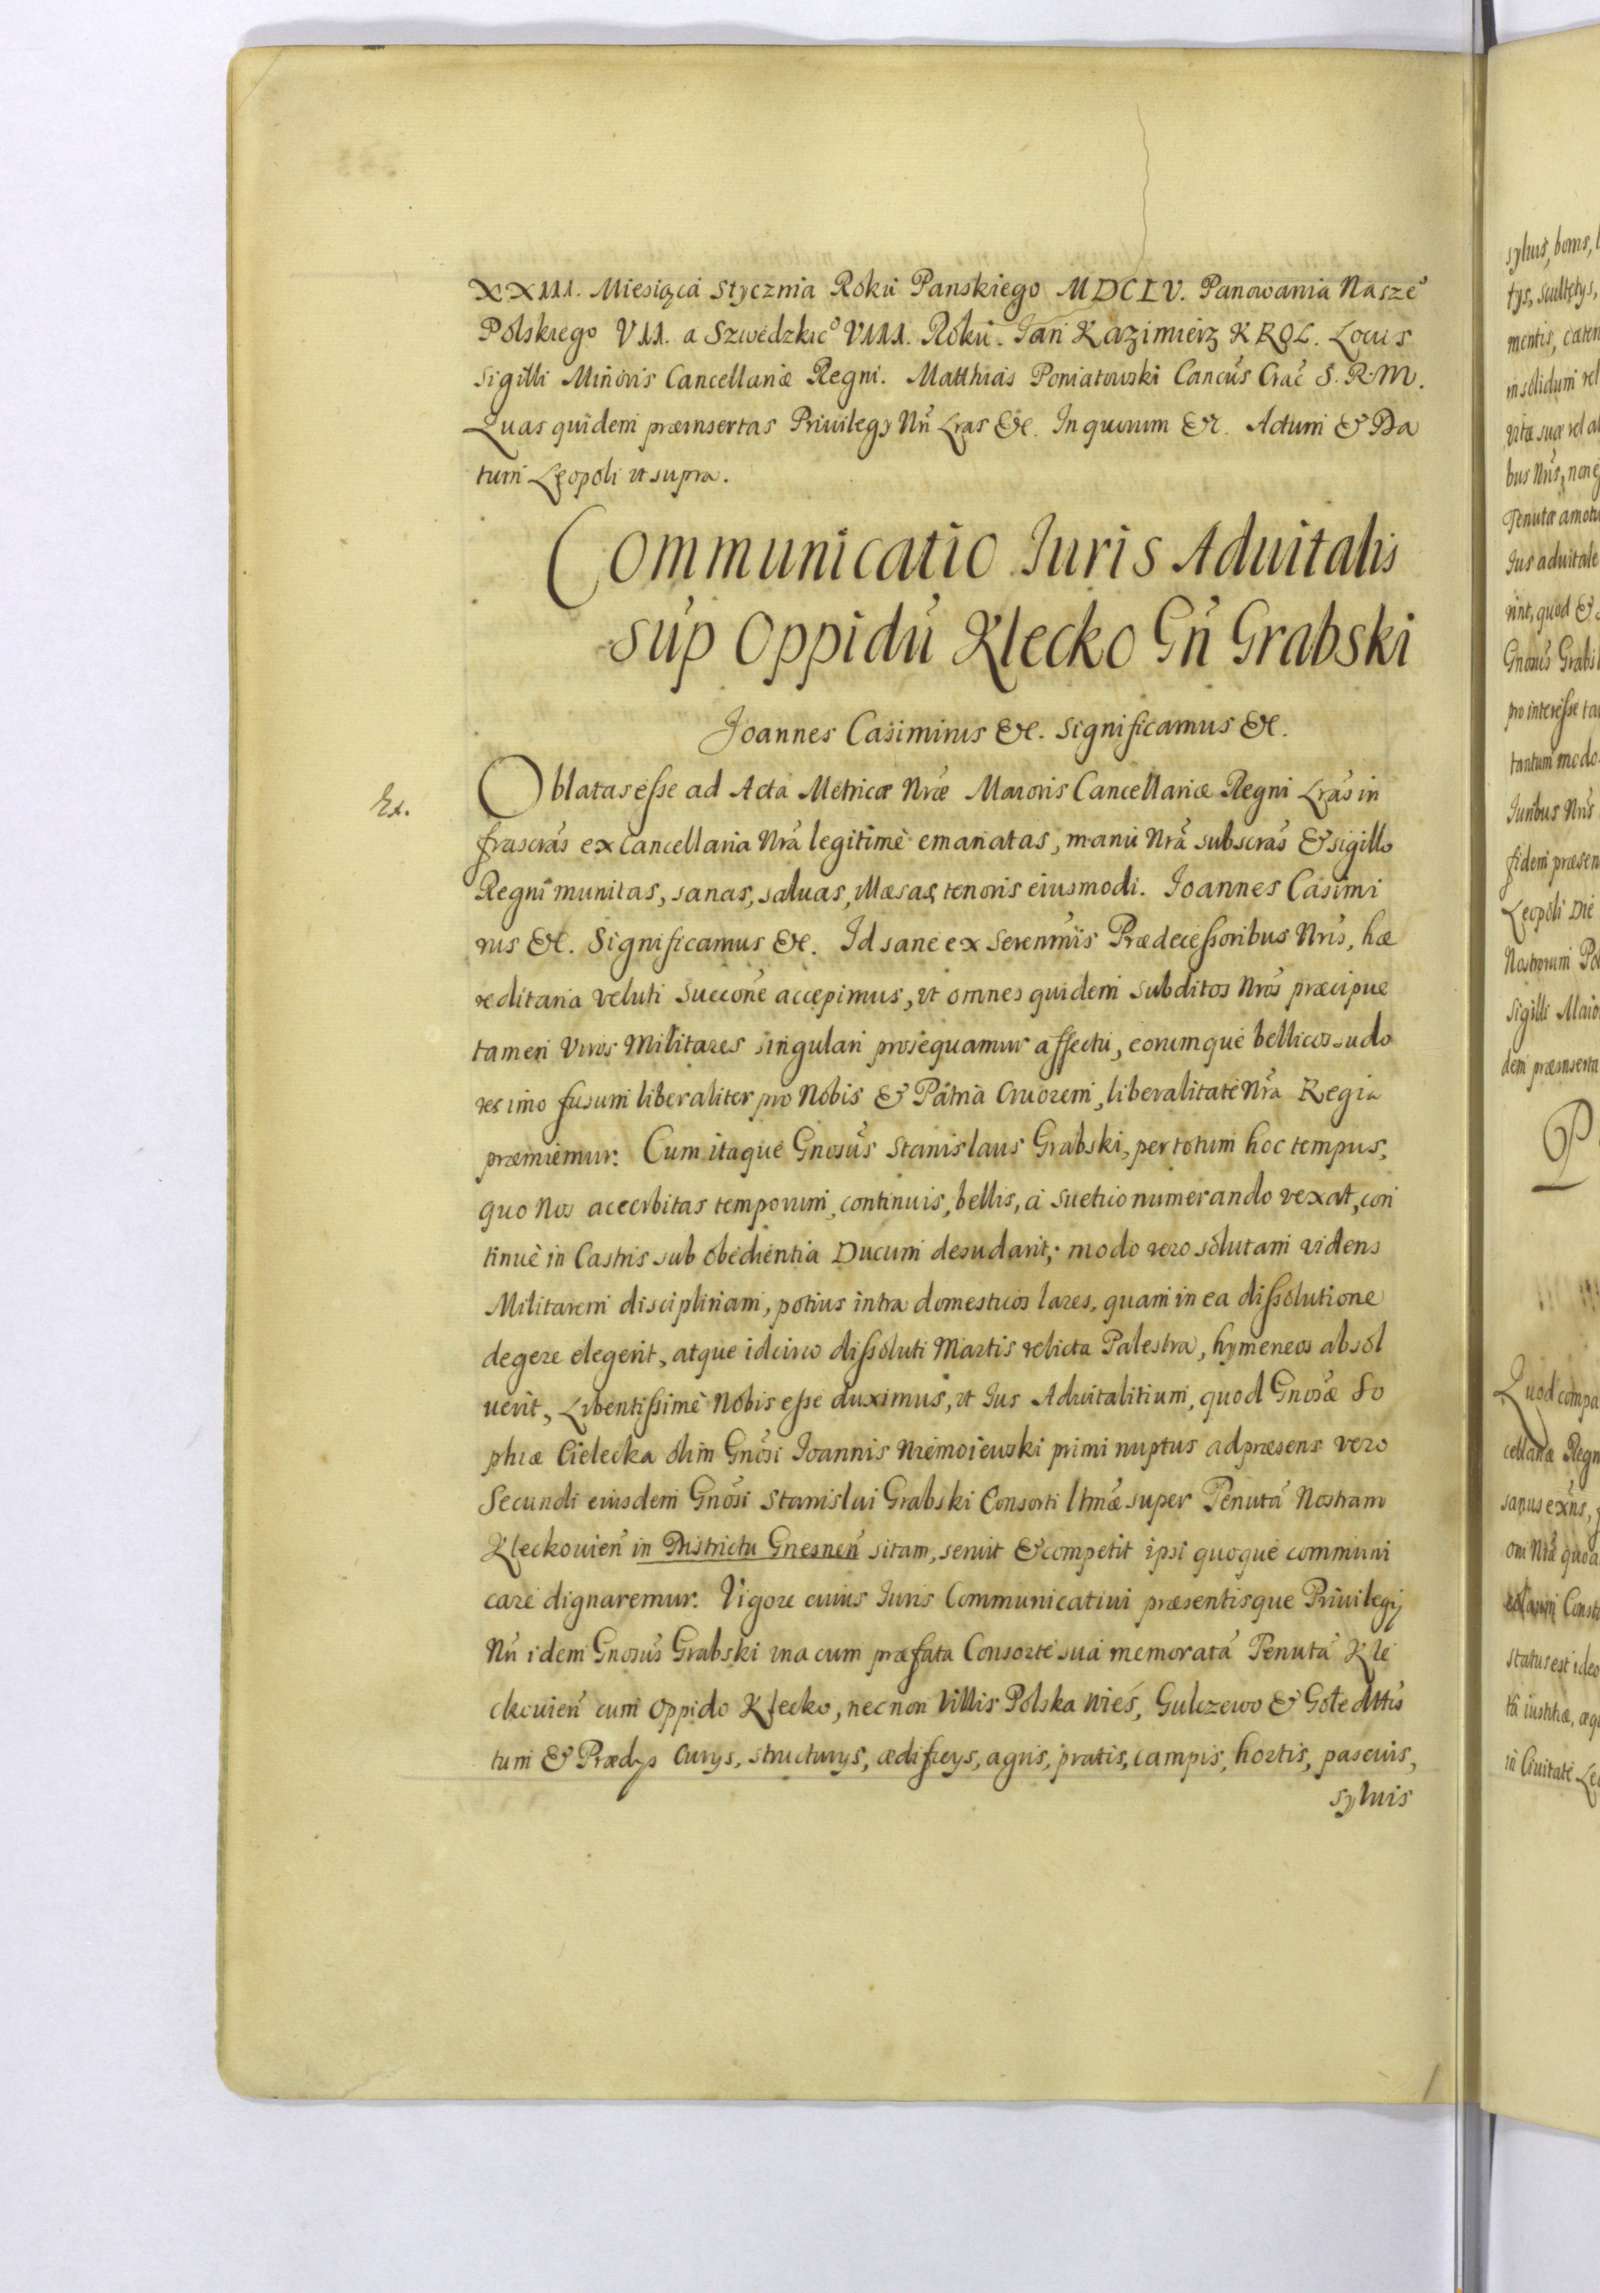 XXIII. Miesiąca Stycznia Roku Panskiego MDCLV. Panowania Nasze͛
Polskiego VII. a Szwedzkie͛ VIII. Roku. Jan Kazimierz KROL. Locus
Sigilli Minoris Cancellariæ Regni. Matthias Poniatowski Cancūs Crac̄ S. R. M.
Quas quidem præinsertas Privilegy Nrī Lras &c. In quorum &c. Actum & Da
tum Leopoli ut supra.
Communicatio Juris Aduitalis
sup Oppidū Klecko Gn̄ Grabski
Joannes Casimirus &c. Significamus &c.
Ex.
Oblatas esse ad Acta Metricæ Nræ Maioris Cancellariæ Regni Lras in
frascrās ex Cancellaria Nrā legitimè emanatas, manu Nrā subscrās & sigillo
Regni munitas, sanas, saluas, illæsas, tenoris eiusmodi. Joannes Casimi
rus &c. Significamus &c. Id sane ex Serenmīs Prædecessoribus Nrīs, hæ
reditaria veluti Succōne accepimus, ut omnes quidem subditos Nrōs præcipue
tamen Viros Militares singulari prosequamur affectu, eorumque bellicos sudo
res imo fusum liberaliter pro Nobis & Patria Cruorem, liberalitate Nrā Regia
præmiemur. Cum itaque Gnosūs Stanislaus Grabski, per totum hoc tempus,
quo Nos acerbitas temporum, continuis, bellis, a suetuo numerando vexat, con
tinuè in Castris sub obedientia Ducum desudarit; modo vero solutam videns
Militarem disciplinam, potius intra domesticos lares, quam in ea dissolutione
degere elegerit, atque idcirco dissoluti Martis relicta Palestra, hymeneos absol
uerit, Libentissimè Nobis esse duximus, ut Jus Aduitalitium, quod Gnosæ So
phiæ Cielecka olim Gnōsi Joannis Niemoiewski primi nuptus ad præsens vero
Secundi eiusdem Gnōsi Stanislai Grabski Consorti ltmæ super Penutā Nostram
Kleckouien̄ in Districtu Gnesnen̄ sitam, seruit & competit ipsi quoque communi
care dignaremur. Vigore cuius Juris Communicatiui præsentisque Priuilegij
Nrī idem Gnosūs Grabski una cum præfata Consorte sua memoratā Tenutā Kle
ckouien̄ cum oppido Klecko, nec non Villis Polska wieś, Gulczewo & Gote
tum & Prædys Curys, structurys, ædificys, agris, pratis, campis, hortis, pascuis,
syluis